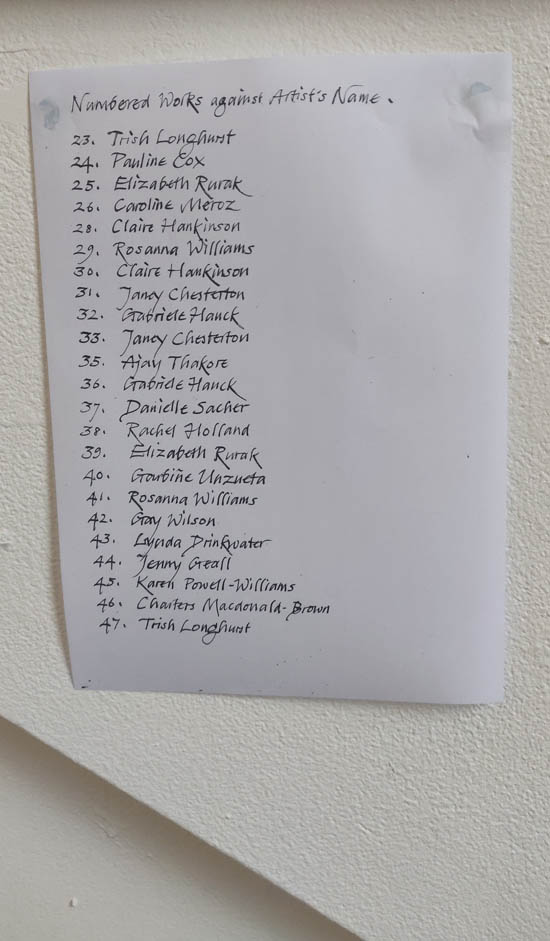 Numbered Works against Artist's Name.
23. Trish Longhurst
24. Pauline Cox
25. Elizabeth Rurak
26. Caroline Meroz
28. Claire Hankinson
29. Rosanna Williams
30. Claire Hankinson
31. Janey Chesterton
32. Gabriele Hanck
33. Janey Chesterton
35. Ajay Thakore
36. Gabriele Hanck
37. Danielle Sacher
38. Rachel Holland
39. Elizabeth Rurak
40. Goubiñe Unzueta
41. Rosanna Williams
42. Gay Wilson
43. Lynda Drinkwater
44. Jenny Geall
45. Karen Powell-Williams
46. Charters Macdonald-Brown
47. Trish Longhurst